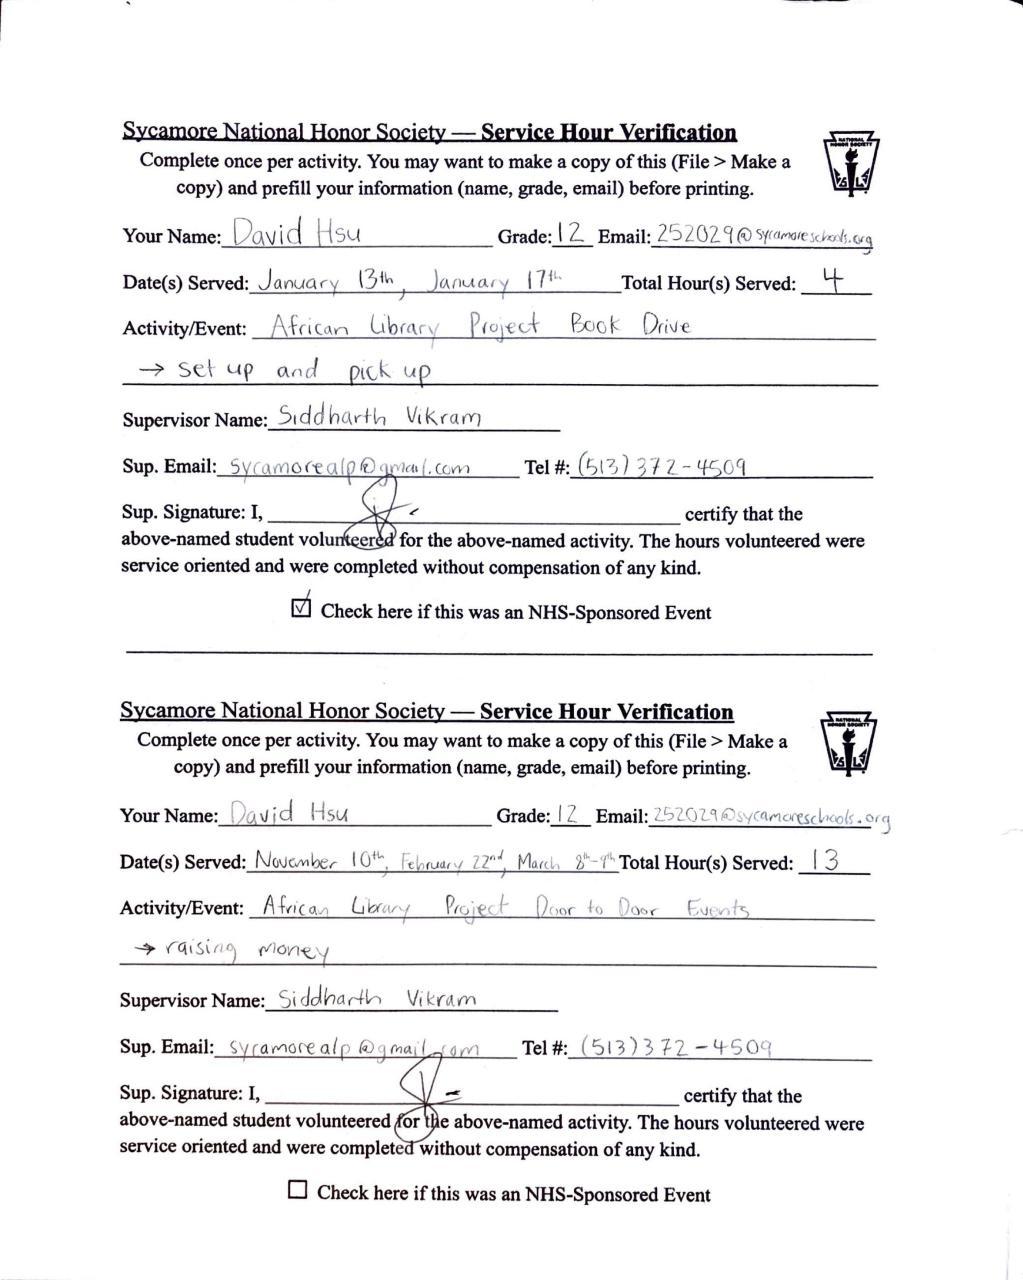 Sycamore National Honor Society — Service Hour Verification
NATIONAL
HONOR SOCIETY
Complete once per activity. You may want to make a copy of this (File > Make a
copy) and prefill your information (name, grade, email) before printing.
Your Name: David Hsu Grade: 12 Email: 252029@sycamoreschools.org
Date(s) Served: January 13th, January 17th Total Hour(s) Served: 4
Activity/Event: African Library Project Book Drive
→ set up and pick up
Supervisor Name: Siddharth Vikram
Sup. Email: sycamorealp@gmail.com Tel #: (513) 372-4509
Sup. Signature: I, certify that the
above-named student volunteered for the above-named activity. The hours volunteered were
service oriented and were completed without compensation of any kind.
☑ Check here if this was an NHS-Sponsored Event
Sycamore National Honor Society — Service Hour Verification
NATIONAL
HONOR SOCIETY
Complete once per activity. You may want to make a copy of this (File > Make a
copy) and prefill your information (name, grade, email) before printing.
Your Name: David Hsu Grade: 12 Email: 252029@sycamoreschools.org
Date(s) Served: November 10th, February 22nd, March 8th-9th Total Hour(s) Served: 13
Activity/Event: African Library Project Door to Door Events
→ raising money
Supervisor Name: Siddharth Vikram
Sup. Email: sycamorealp@gmail.com Tel #: (513) 372-4509
Sup. Signature: I, certify that the
above-named student volunteered for the above-named activity. The hours volunteered were
service oriented and were completed without compensation of any kind.
☐ Check here if this was an NHS-Sponsored Event